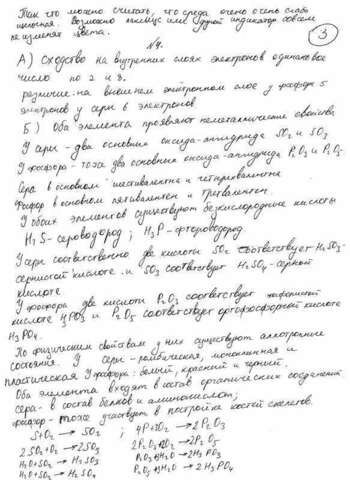 Так что можно считать, что среда очень очень слабо
щелочная. Возможно лакмус или другой индикатор совсем
не изменят цвета.
3
№4.
А) Сходство на внутренних слоях электронов одинаковое
число по 2 и 8.
различие: на внешнем электронном слое у фосфора 5
электронов у серы 6 электронов
Б) Оба элемента проявляют неметаллические свойства
У серы - два основных оксида-ангидрида SO2 и SO3
У фосфора - тоже два основных оксида-ангидрида P2O3 и P2O5.
Сера в основном шестивалентна и четырехвалентна
Фосфор в основном пятивалентен и трехвалентен.
У обоих элементов существуют безкислородные кислоты
H2S - сероводород;
У серы соответственно две кислоты SO2 соответствует H2SO3-
сернистой кислоте и SO3 соответствует H2SO4-серной
кислоте
У фосфора две кислоты P2O3 соответствует фосфористой
кислоте H3PO3 и P2O5 соответствует ортофосфорной кислоте
H3PO4.
По физическим свойствам у них существуют аллотропные
состояния. У серы - ромбическая, моноклинная и
пластическая У фосфора: белый, красный и черный.
Оба элемента входят в состав органических соединений
сера - в состав белков и аминокислот;
фосфор - тоже участвует в постройке костей скелетов.
S+O2 → SO2 ; 4P+3O2 → 2P2O3
2SO2+O2 → 2SO3 2P2O3+2O2 → 2P2O5
H2O+SO2 → H2SO3 P2O3+3H2O → 2H3PO3
H2O+SO3 → H2SO4 P2O5+3H2O → 2H3PO4